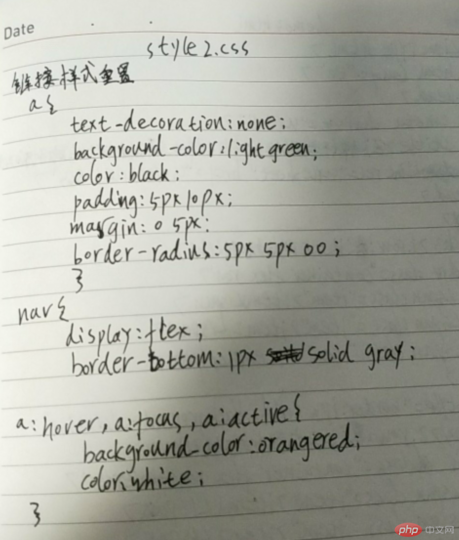 Date
style2.css
链接样式重置
a{
text-decoration:none;
background-color:lightgreen;
color:black;
padding:5px 10px;
margin:0 5px;
border-radius:5px 5px 0 0;
}
nav{
display:flex;
border-bottom:1px solid gray;
a:hover,a:focus,a:active{
background-color:orangered;
color:white;
}
php 中文网